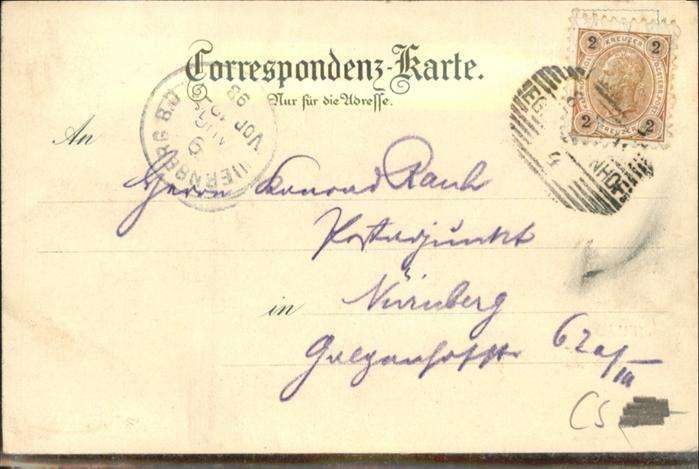 Correspondenz-Karte.
Nur für die Adresse.
2 KREUZER 2
2 KREUZER 2
NUERNBERG B.P.
9
AUG
VOR
98
An
Herrn Konrad Rauh
Postadjunkt
in Nürnberg
62a/III
CS